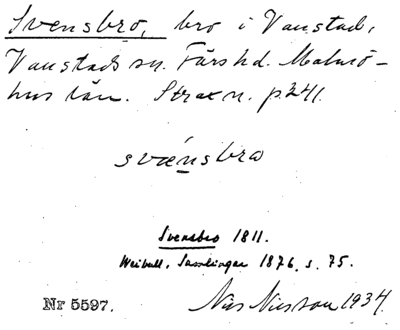 Svensbro, bro i Vanstad,
Vanstads sn. Färs hd. Malmö-
hus län. Strax n. p. 241.
svænsbro
Svensbro 1811.
Weibull, Samlingar 1876, s. 75.
Nr 5597. Nils Nilsson 1934.